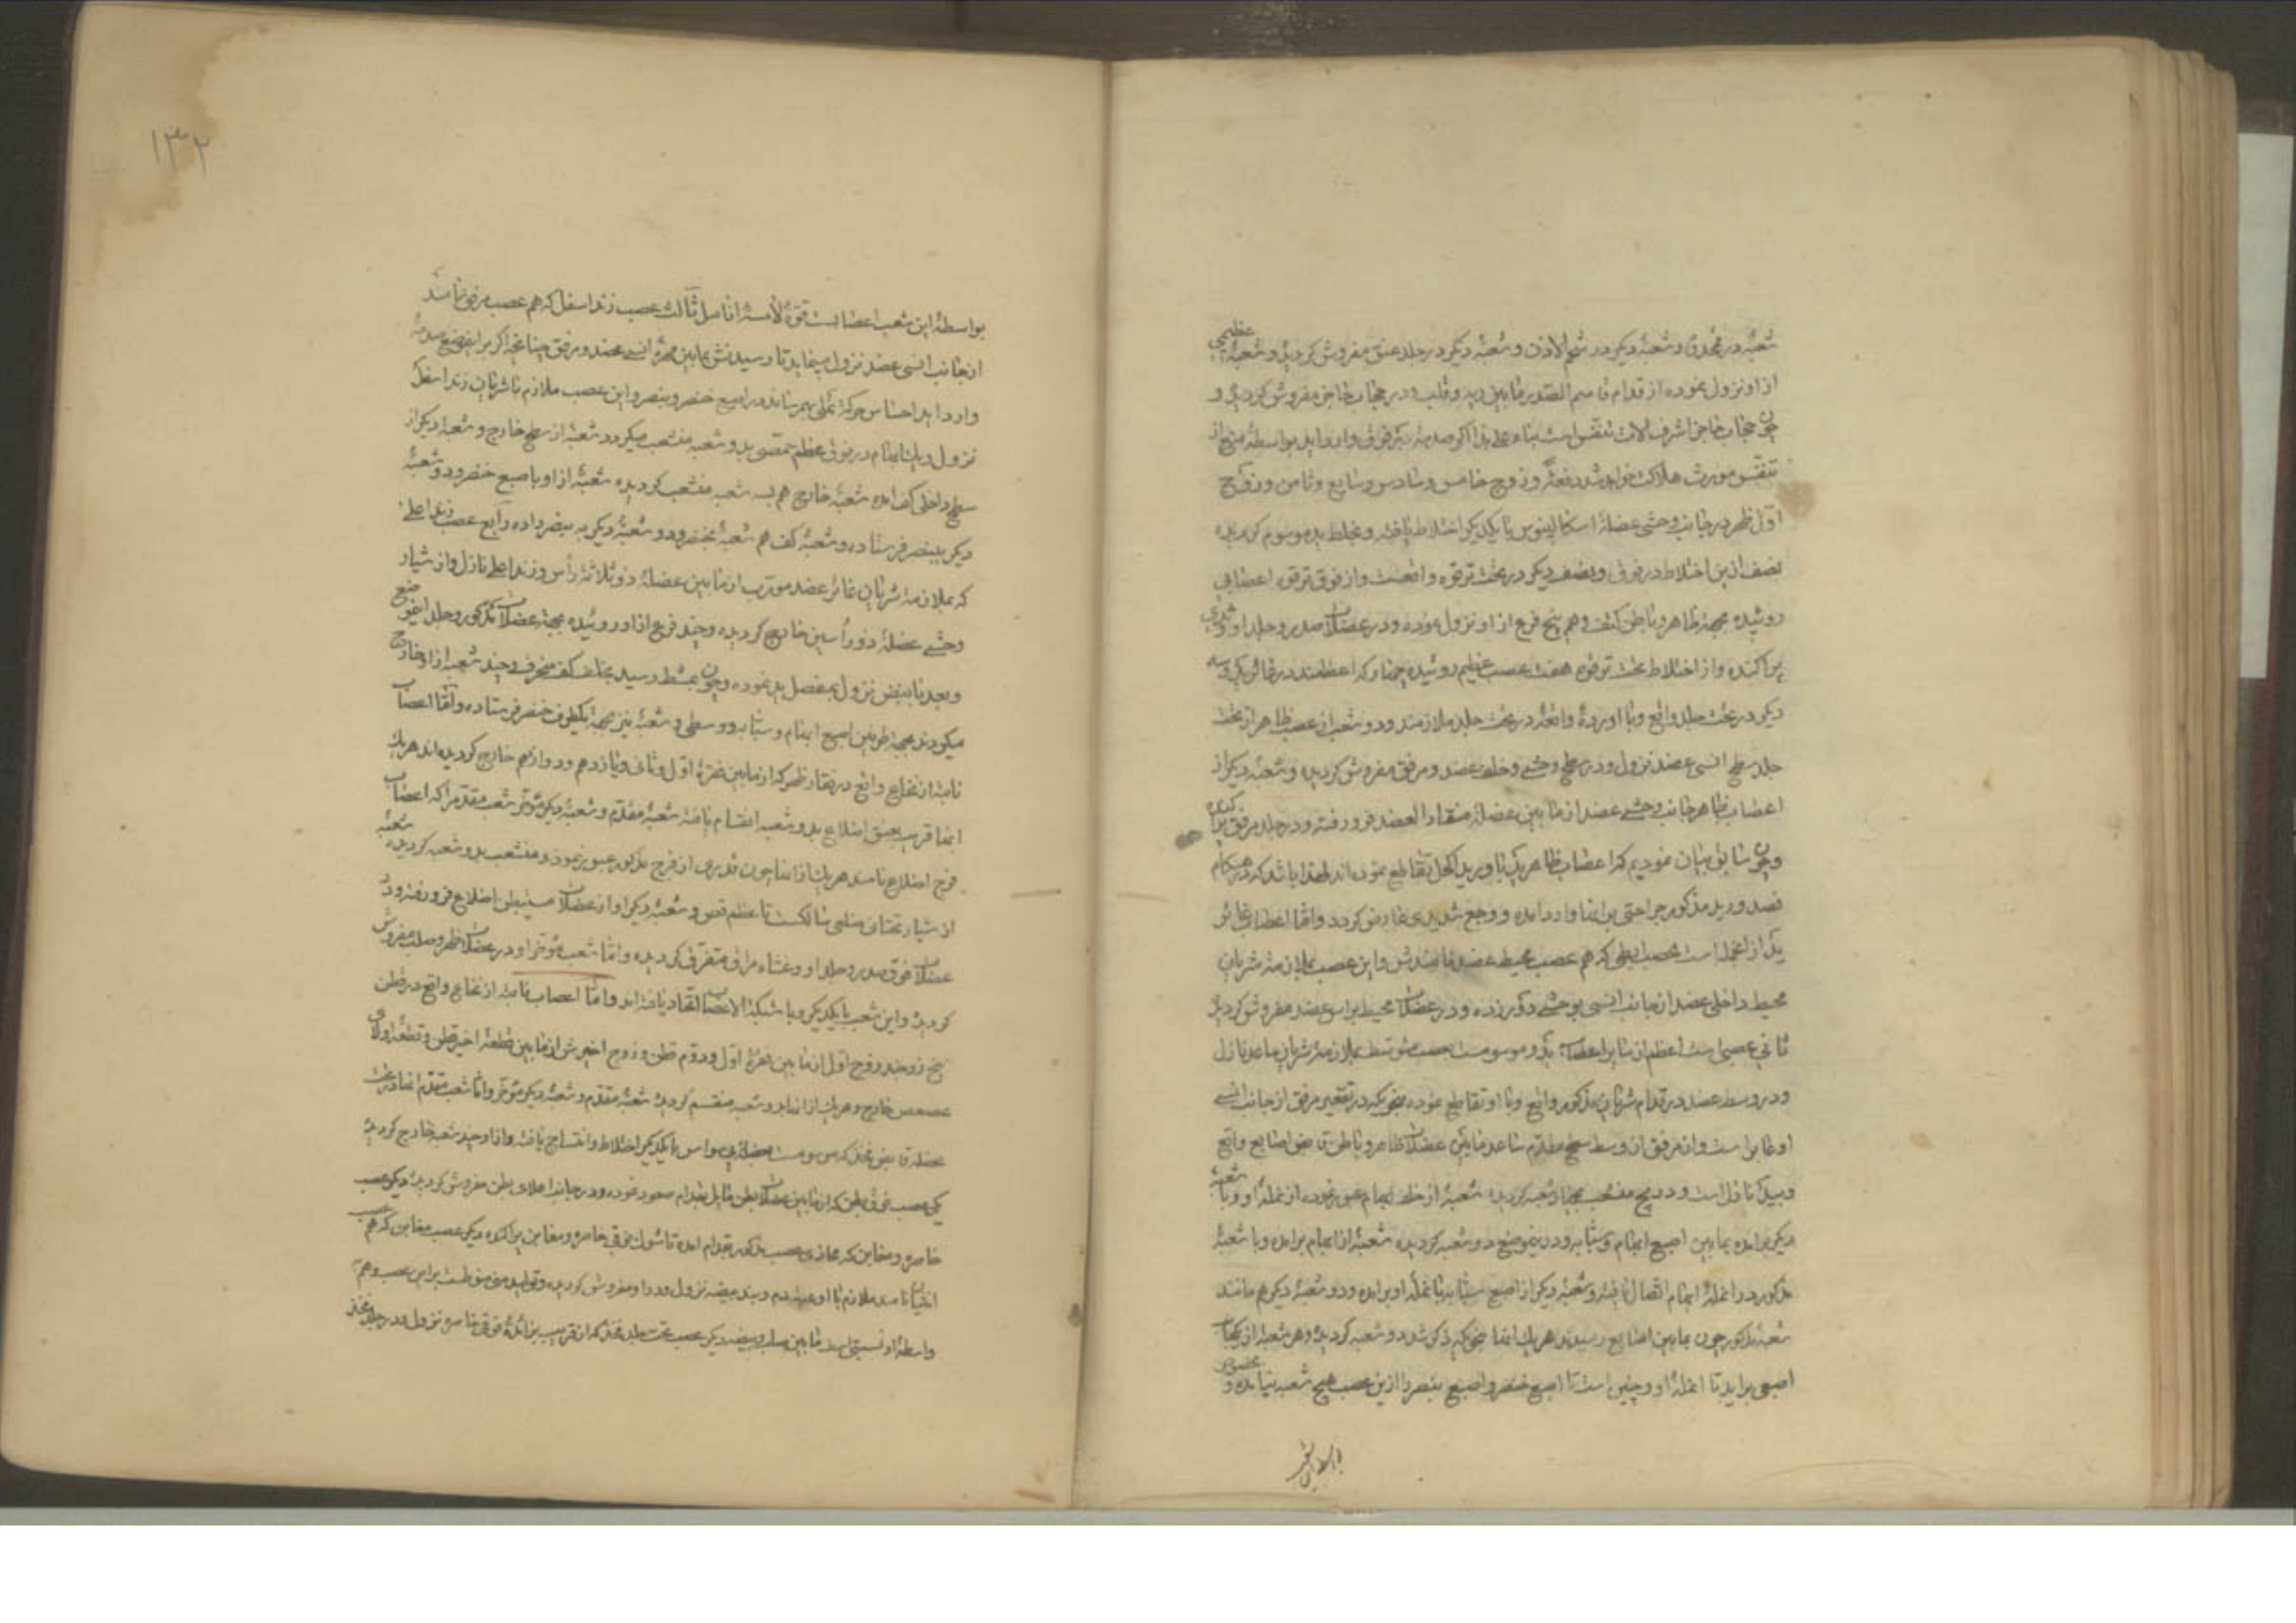 شعبهٔ در محدق و شعبهٔ دیکر در شحم الاذن و شعبهٔ دیکر در جلد عنق مفروش کردیده و شعبهٔ عظیمی
از او نزول نموده از قدام قاسم الصدر مابین ریه و قلب و در حجاب حاجز مفروش کردیده و
چون حجاب حاجز اشرف الات تنفس است بناء علی هذا اکر صدمهٔ بر فوق وارد اید بواسطهٔ منع از
تنفس مورث هلاکت خواهد شد دفعةً و زوج خامس و سادس و سابع و ثامن و زوج
اول ظهر در جانب وحشی عضلهٔ اسکالینوس با یکدیکر اختلاط یافته و مختلط ید موسوم کردیده
نصف ازین اختلاط در فوق و نصف دیکر در تحت ترقوه واقعست و از فوق ترقوه اعصابی
روئیده بجهة ظاهر و باطن کتف و هم پنج فرع از او نزول نموده و در عضلات صدر و جلد او و ثدی
پراکنده و از اختلاط تحت ترقوه هفت عصب عظیم روئیده چهار که اعظمند در غائر ید و سه
دیکر در تحت جلد واقع و با اوردهٔ واقعهٔ در تحت جلد ملازمند و دو شعب از عصب ظاهر از تحت
جلد سطح انسی عضد نزول و در سطح وحشی و خلف عضد و مرفق مفروش کردیده و شعبهٔ دیکر از
اعصاب ظاهر جانب وحشی عضد از مابین عضلهٔ منقار العضد فرو رفته و در جلد مرفق پراکنده
و چون سابق بیان نمودیم که اعصاب ظاهر ید با ورید اکحل تقاطع نموده‌اند لهذا باشد که در هنکام
فصد ورید مذکور جراحتی بر انها وارد امده و وجع شدیدی عارض کردد و اما اعصاب غائر
یکی از انجمله است عصب ابطی که هم عصب محیط عضد نامندش و این عصب بملازمت شریان
محیط داخلی عضد از جانب انسی بوحشی دور زده و در عضلات محیط براس عضد مفروش کردید
ثانی عصبی است اعظم از سایر اعصاب ید و موسوم است بعصب متوسط بملازمت شریان ساعد نازل
و در وسط عضد در قدام شریان مذکور واقع و با او تقاطع نموده بنحویکه در تقعیر مرفق از جانب انسی
او عابر است و از مرفق از وسط سطح مقدم ساعد مابین عضلات ظاهر و باطن قابض اصابع واقع
و بید نازل است و در مچ منشعب بچهار شعبه کردیده شعبهٔ از خلف ابهام عبور نموده از نملهٔ او و با شعبهٔ
دیکر بر امده بمابین اصبع ابهام و سبابه و در ینموضع دو شعبه کردیده شعبهٔ از ابهام بر امده و با شعبهٔ
مذکور در انملهٔ ابهام اتصال یافته و شعبهٔ دیکر از اصبع سبابه تا انملهٔ او بر امده و دو شعبهٔ دیکر هم مانند
شعبهٔ مذکور چون بمابین اصابع رسیدند هر یک انها بنحویکه ذکر شد دو شعبه کردیده و هر شعبهٔ از یکجانب
اصبعی بر اید تا انملهٔ او و چنین است تا اصبع خنصر و اصبع بنصر را ازین عصب هیچ شعبه نیامده و مخصوص
۱۳۲
بواسطهٔ این شعب اعصابست قوهٔ لامسهٔ انامل ثالث عصب زند اسفل که هم عصب مرفقی نامند
از جانب انسی عضد نزول مینماید تا رسیدنش بمابین مهرهٔ انسی عضد و مرفق چنانچه اکر بر اینموضع صدمهٔ
وارد اید احساس حرکة نملی بهم رساند در اصبع خنصر و بنصر و این عصب ملازم با شریان زند اسفل
نزول و بابهام در فوق عظم حمصی بدو شعبه منشعب میکردد شعبهٔ از سطح خارج و شعبهٔ دیکر از
سطح داخلی کف امده شعبهٔ خارج هم بسه شعبه منشعب کردیده شعبهٔ از او باصبع خنصر و دو شعبهٔ
دیکر ببنصر فرستاده و شعبهٔ کف هم شعبهٔ بخنصر و دو شعبهٔ دیکر به بنصر داده رابع عصب زند اعلی
که بملازمت شریان غائر عضد مورب از مابین عضلهٔ ذو ثلاثة رأس و زند اعلی نازل و از شیار
وحشی عضلهٔ ذو رأسین خارج کردیده و چند فرع از او روئیده بجهة عضلات مذکور و جلد اینموضع
و بعد با نبض نزول بمفصل ید نموده و چون بمشط رسید بخلف کف منحرف و چند شعبه از او خارج
میکردند بجهة طرفین اصبع ابهام و سبابه و وسطی و شعبهٔ نیز بجهة یکطرف خنصر فرستاده و اما اعصاب
نابته از نخاع واقع در فقار ظهر که از مابین فقرهٔ اول و ثانی و یازدهم و دوازدهم خارج کردیده‌اند هر یک
انها قریب بعنق اضلاع بدو شعبه انقسام یافته شعبهٔ مقدم و شعبهٔ دیکر مؤخر شعب مقدم را که اعصاب
فرج اضلاع نامند هر یک از انها چون قدری از فرج مذکور عبور نموده منشعب بدو شعبه کردیده شعبهٔ
از شیار تحتانی ضلعی سالکست تا عظم قص و شعبهٔ دیکر او از عضلات مستبطن اضلاع فرو رفته و در
عضلات فوق صدر و جلد او و غشاء مراق متفرق کردیده و اما شعب مؤخر او در عضلات ظهر و صلب مفروش
کردیده و این شعب با یکدیکر و با شبکة الاعصاب اتحاد یافته‌اند و اما اعصاب نابته از نخاع واقع در قطن
پنج زوجند زوج اول از مابین فقرهٔ اول و دوم قطن و زوج اخیرش از مابین قطعهٔ اخیر قطن و قطعهٔ اولای
عصعص خارج و هر یک از انها بدو شعبه منقسم کردیده شعبهٔ مقدم و شعبهٔ دیکر مؤخر و اما شعب مقدم انها در تحت
عضلهٔ قابض فخذ که موسومست بعضلهٔ پسواس با یکدیکر اختلاط و انتساج یافته و از او چند شعبه خارج کردیده
یکی عصب فوق بطن که از مابین عضلات بطن مایل بقدام صعود نموده و در جانب اعلای بطن مفروش کردیده دیکر عصب
خاصره و مغابن که محاذی عصب مذکور بقدام امده تا شوک فوقی خاصره و مغابن پراکنده دیکر عصب مغابن که هم عصب
انثیان نامند ملازم با اوعیهٔ دم و بند بیضه نزول و در او مفروش کردیده
واسطهٔ او نسبتی است مابین صلب و بیضه دیکر عصب تحت جلد فخذ که از قریب بزائدهٔ فوقی خاصره نزول و در جلد فخذ